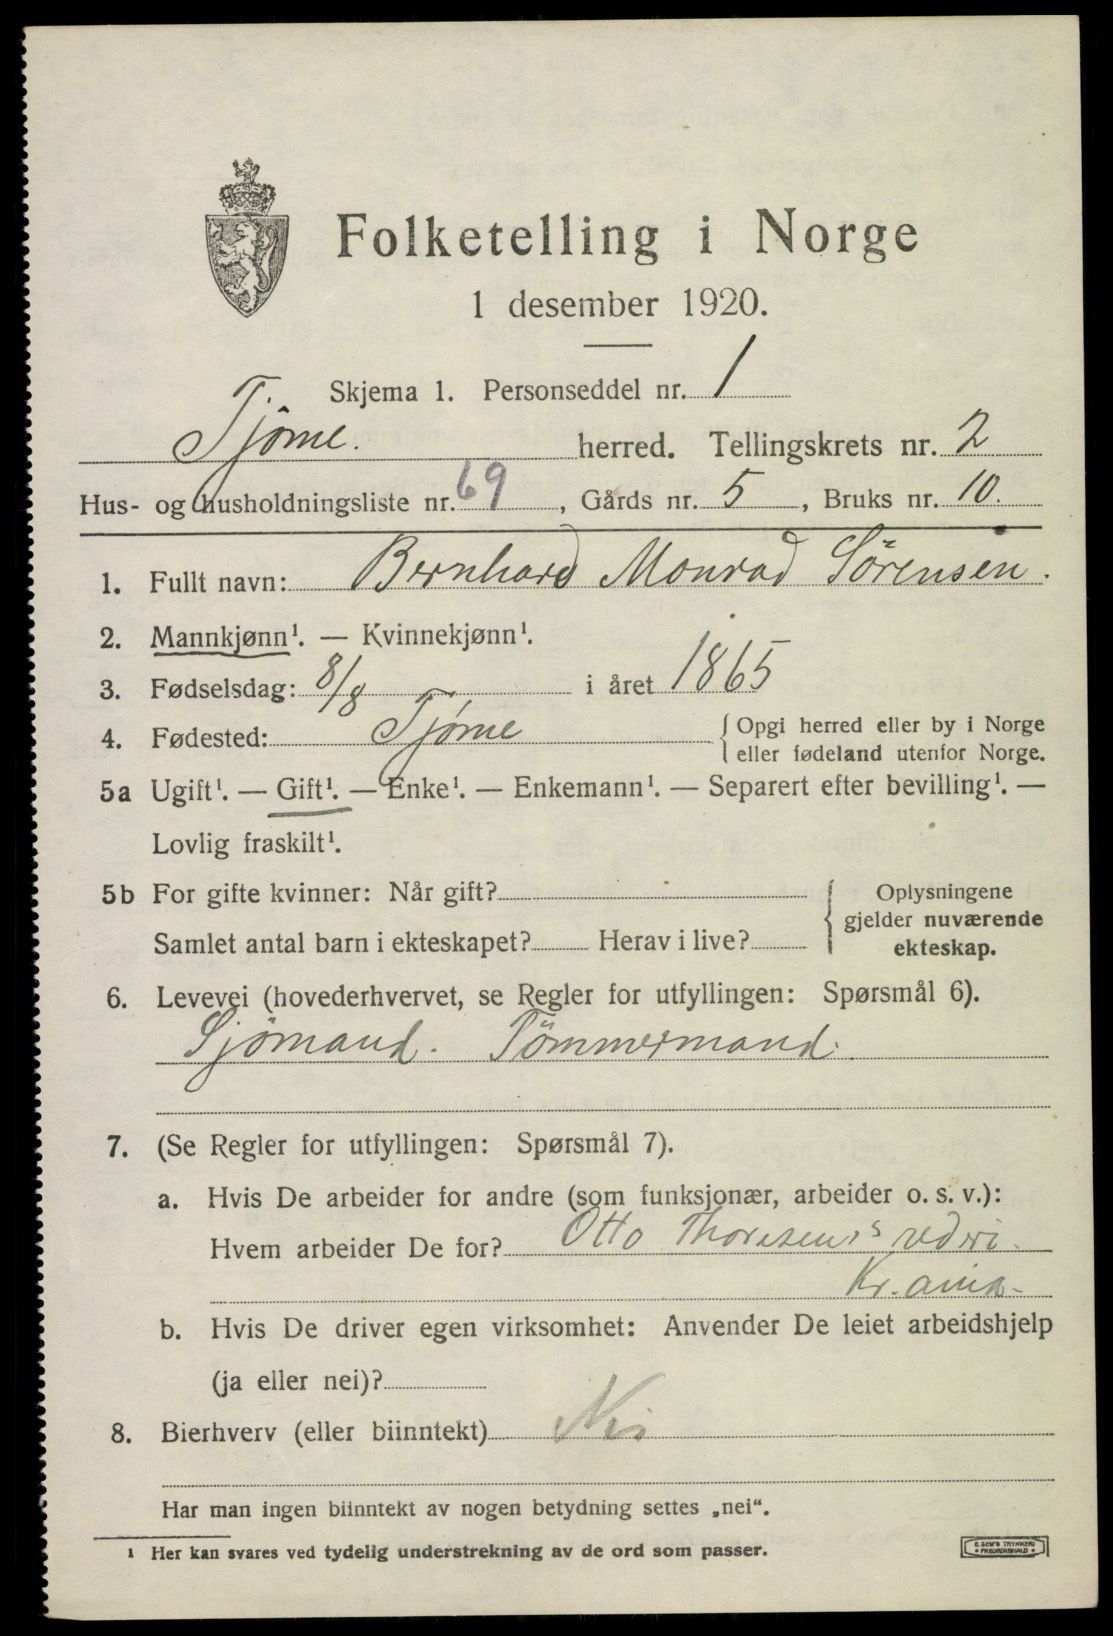 Folketelling i Norge
1 desember 1920.
Skjema 1. Personseddel nr. 1
Tjöme. herred. Tellingskrets nr. 2
Hus- og husholdningsliste nr. 69, Gårds nr. 5, Bruks nr. 10.
1. Fullt navn: Bernhard Monrad Sörensen.
2. Mannkjønn¹. — Kvinnekjønn¹.
3. Fødselsdag: 8/8 i året 1865
4. Fødested: Tjøme { Opgi herred eller by i Norge
eller fødeland utenfor Norge.
5a Ugift¹. — Gift¹. — Enke¹. — Enkemann¹. — Separert efter bevilling¹. —
Lovlig fraskilt¹.
5b For gifte kvinner: Når gift?
Samlet antal barn i ekteskapet? Herav i live?
Oplysningene
gjelder nuværende
ekteskap.
6. Levevei (hovederhvervet, se Regler for utfyllingen: Spørsmål 6).
Sjömand. Tömmermand.
7. (Se Regler for utfyllingen: Spørsmål 7).
a. Hvis De arbeider for andre (som funksjonær, arbeider o. s. v.):
Hvem arbeider De for? Otto Thoresen's rederi.
Kr.ania.
b. Hvis De driver egen virksomhet: Anvender De leiet arbeidshjelp
(ja eller nei)?
8. Bierhverv (eller biinntekt) Nei
Har man ingen biinntekt av nogen betydning settes „nei“.
¹ Her kan svares ved tydelig understrekning av de ord som passer.
E. SEM'S TRYKKERI
FREDRIKSHALD